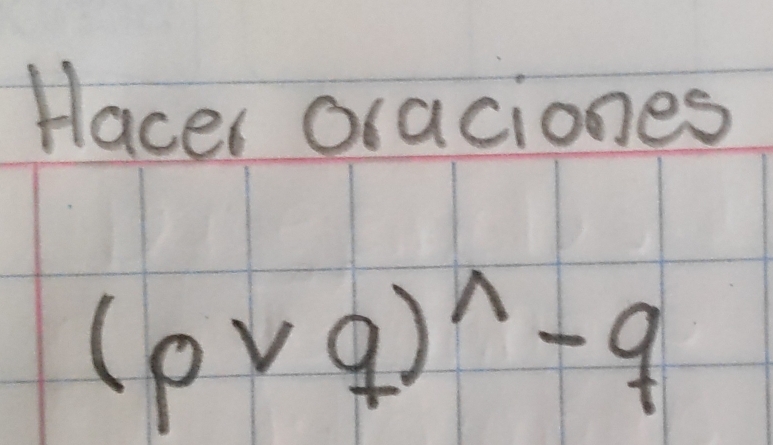 Hacer oraciones
(p ∨ q) ^ - q